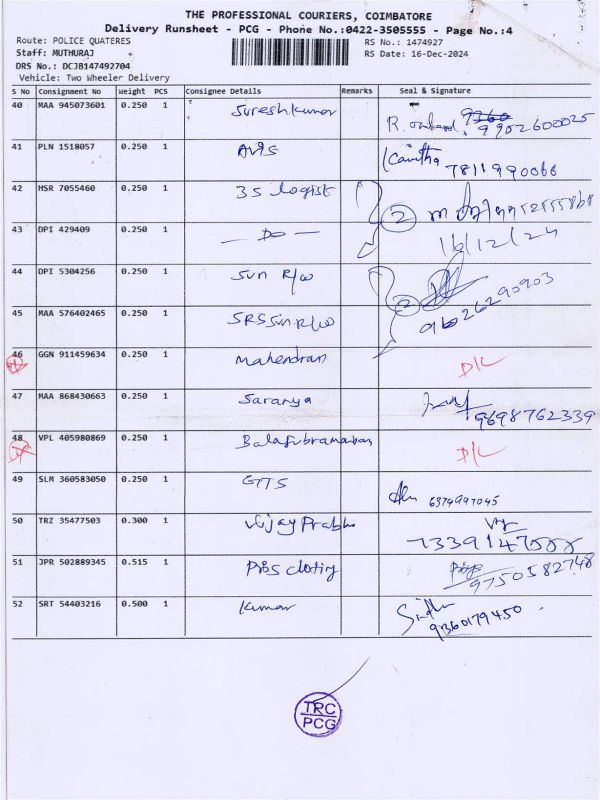 THE PROFESSIONAL COURIERS, COIMBATORE
Delivery Runsheet - PCG - Phone No.:0422-3505555 - Page No.:4
Route: POLICE QUATERES RS No.: 1474927
Staff: MUTHURAJ RS Date: 16-Dec-2024
DRS No.: DCJB147492704
Vehicle: Two Wheeler Delivery
S No Consignment No Weight PCS Consignee Details Remarks Seal & Signature
40 MAA 945073601 0.250 1 Sureshkumar 9902600025
41 PLN 1518057 0.250 1 AVIS Kavitha 7811990066
42 HSR 7055460 0.250 1 3S logist 2
43 DPI 429409 0.250 1 — Do — 16/12/24
44 DPI 5304256 0.250 1 Sun R/W 2
45 MAA 576402465 0.250 1 SRS Sun R/W 9626290903
46 GGN 911459634 0.250 1 Mahendran D/L
47 MAA 868430663 0.250 1 Saranya 9698762339
48 VPL 405980869 0.250 1 Balasubramaniyan D/L
49 SLM 360583050 0.250 1 GTTS 6374997045
50 TRZ 35477503 0.300 1 Vijay Prabhu
51 JPR 502889345 0.515 1 9750582748
52 SRT 54403216 0.500 1 Kumar Sindhu 9360179450
TRC
PCG